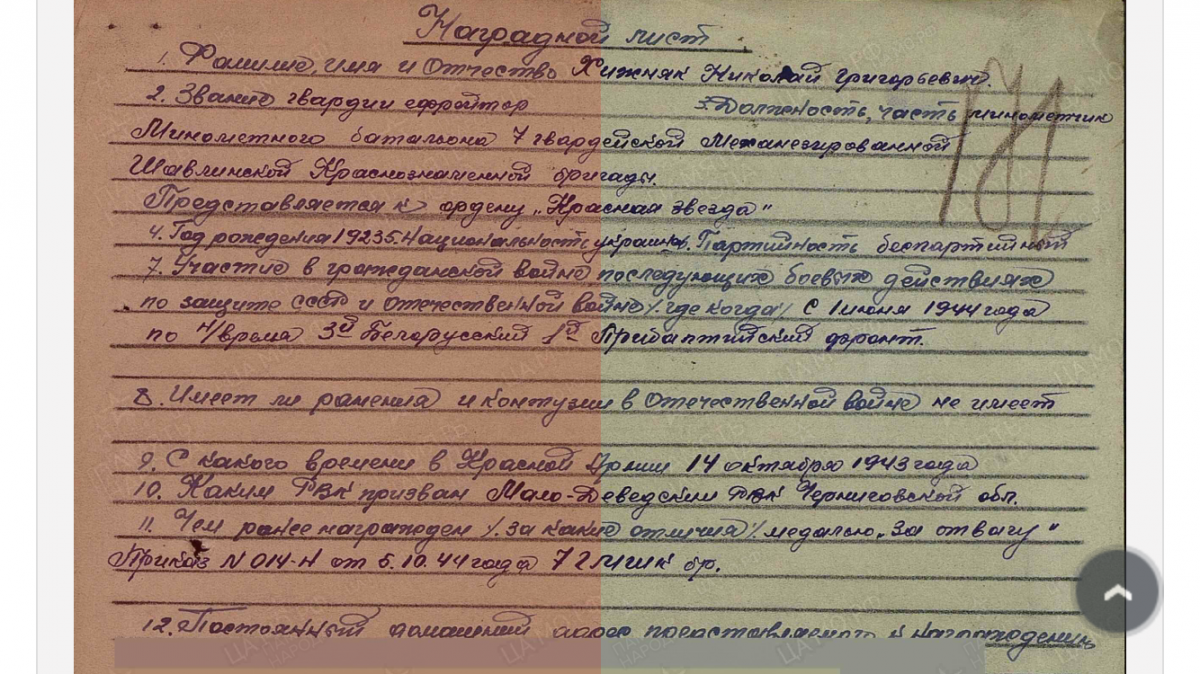 Наградной лист
1. Фамилие, имя и Отчество Хижняк Николай Григорьевич.
2. Звание гвардии ефрейтор 3. Должность, часть минометчик
Минометного батальона 7 гвардейской Механезированной
Шавлинской Краснознаменной бригады.
Представляется к ордену „Красная звезда"
4. Год рождения 1923 5. Национальность украинец. Партийность беспартийный
7. Участие в гражданской войне последующих боевых действиях
по защите СССР и отечественной войне /где когда/ С 1 июня 1944 года
по н/время 3й Белорусский 1й Прибалтийский фронт.
8. Имеет ли ранения и контузии в отечественной войне не имеет
9. С какого времени в Красной Армии 14 октября 1943 года
10. Каким РВК призван Мало-Деведским РВК Черниговской обл.
11. Чем ранее награжден /за какие отличия/ медалью „За отвагу"
Приказ N 014-Н от 5.10.44 года 7 гмшк бр.
12. Постоянный домашний адрес представляемого к награждению
171